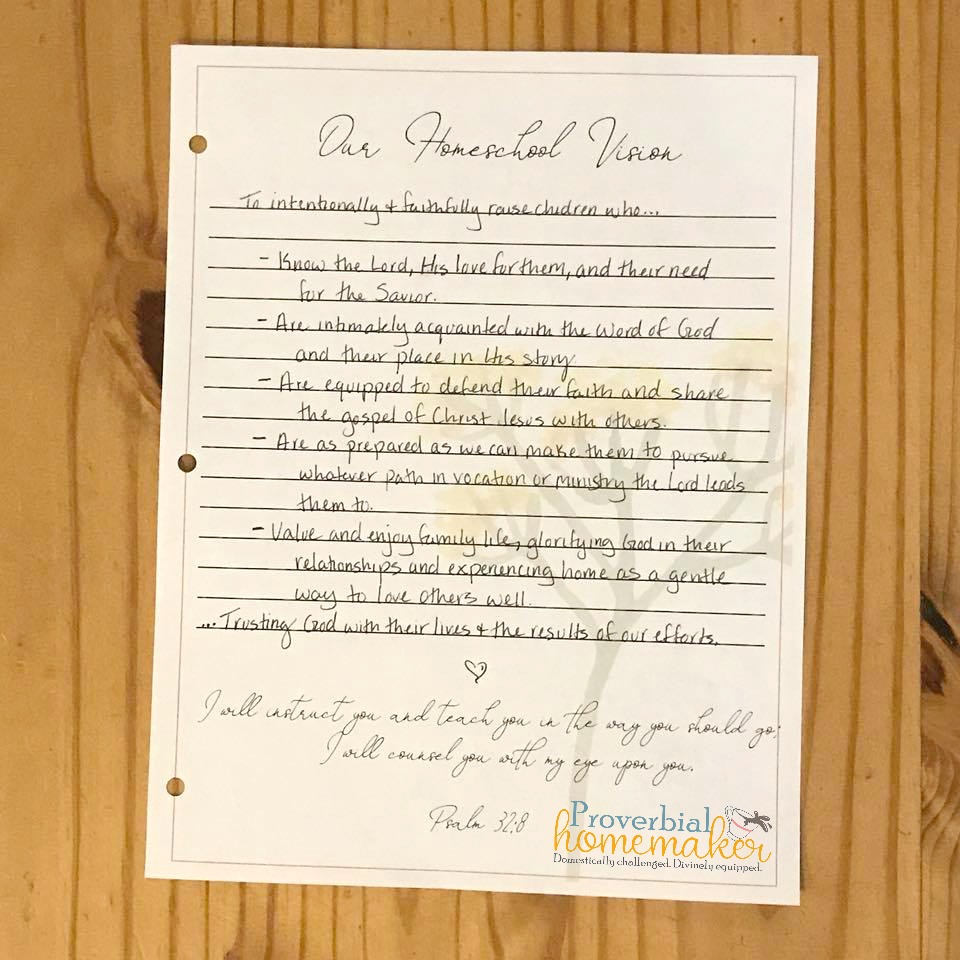 Our Homeschool Vision
To intentionally & faithfully raise children who...
- Know the Lord, His love for them, and their need
for the Savior.
- Are intimately acquainted with the Word of God
and their place in His story.
- Are equipped to defend their faith and share
the gospel of Christ Jesus with others.
- Are as prepared as we can make them to pursue
whatever path in vocation or ministry the Lord leads
them to.
- Value and enjoy family life, glorifying God in their
relationships and experiencing home as a gentle
way to love others well.
...Trusting God with their lives & the results of our efforts.
I will instruct you and teach you in the way you should go;
I will counsel you with my eye upon you.
Psalm 32:8
Proverbial
homemaker
Domestically challenged. Divinely equipped.